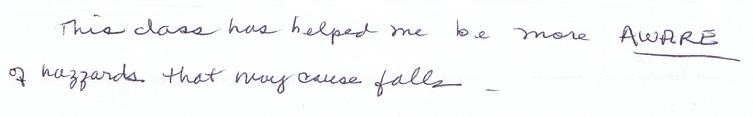 This class has helped me be more AWARE
of hazzards that may cause falls -